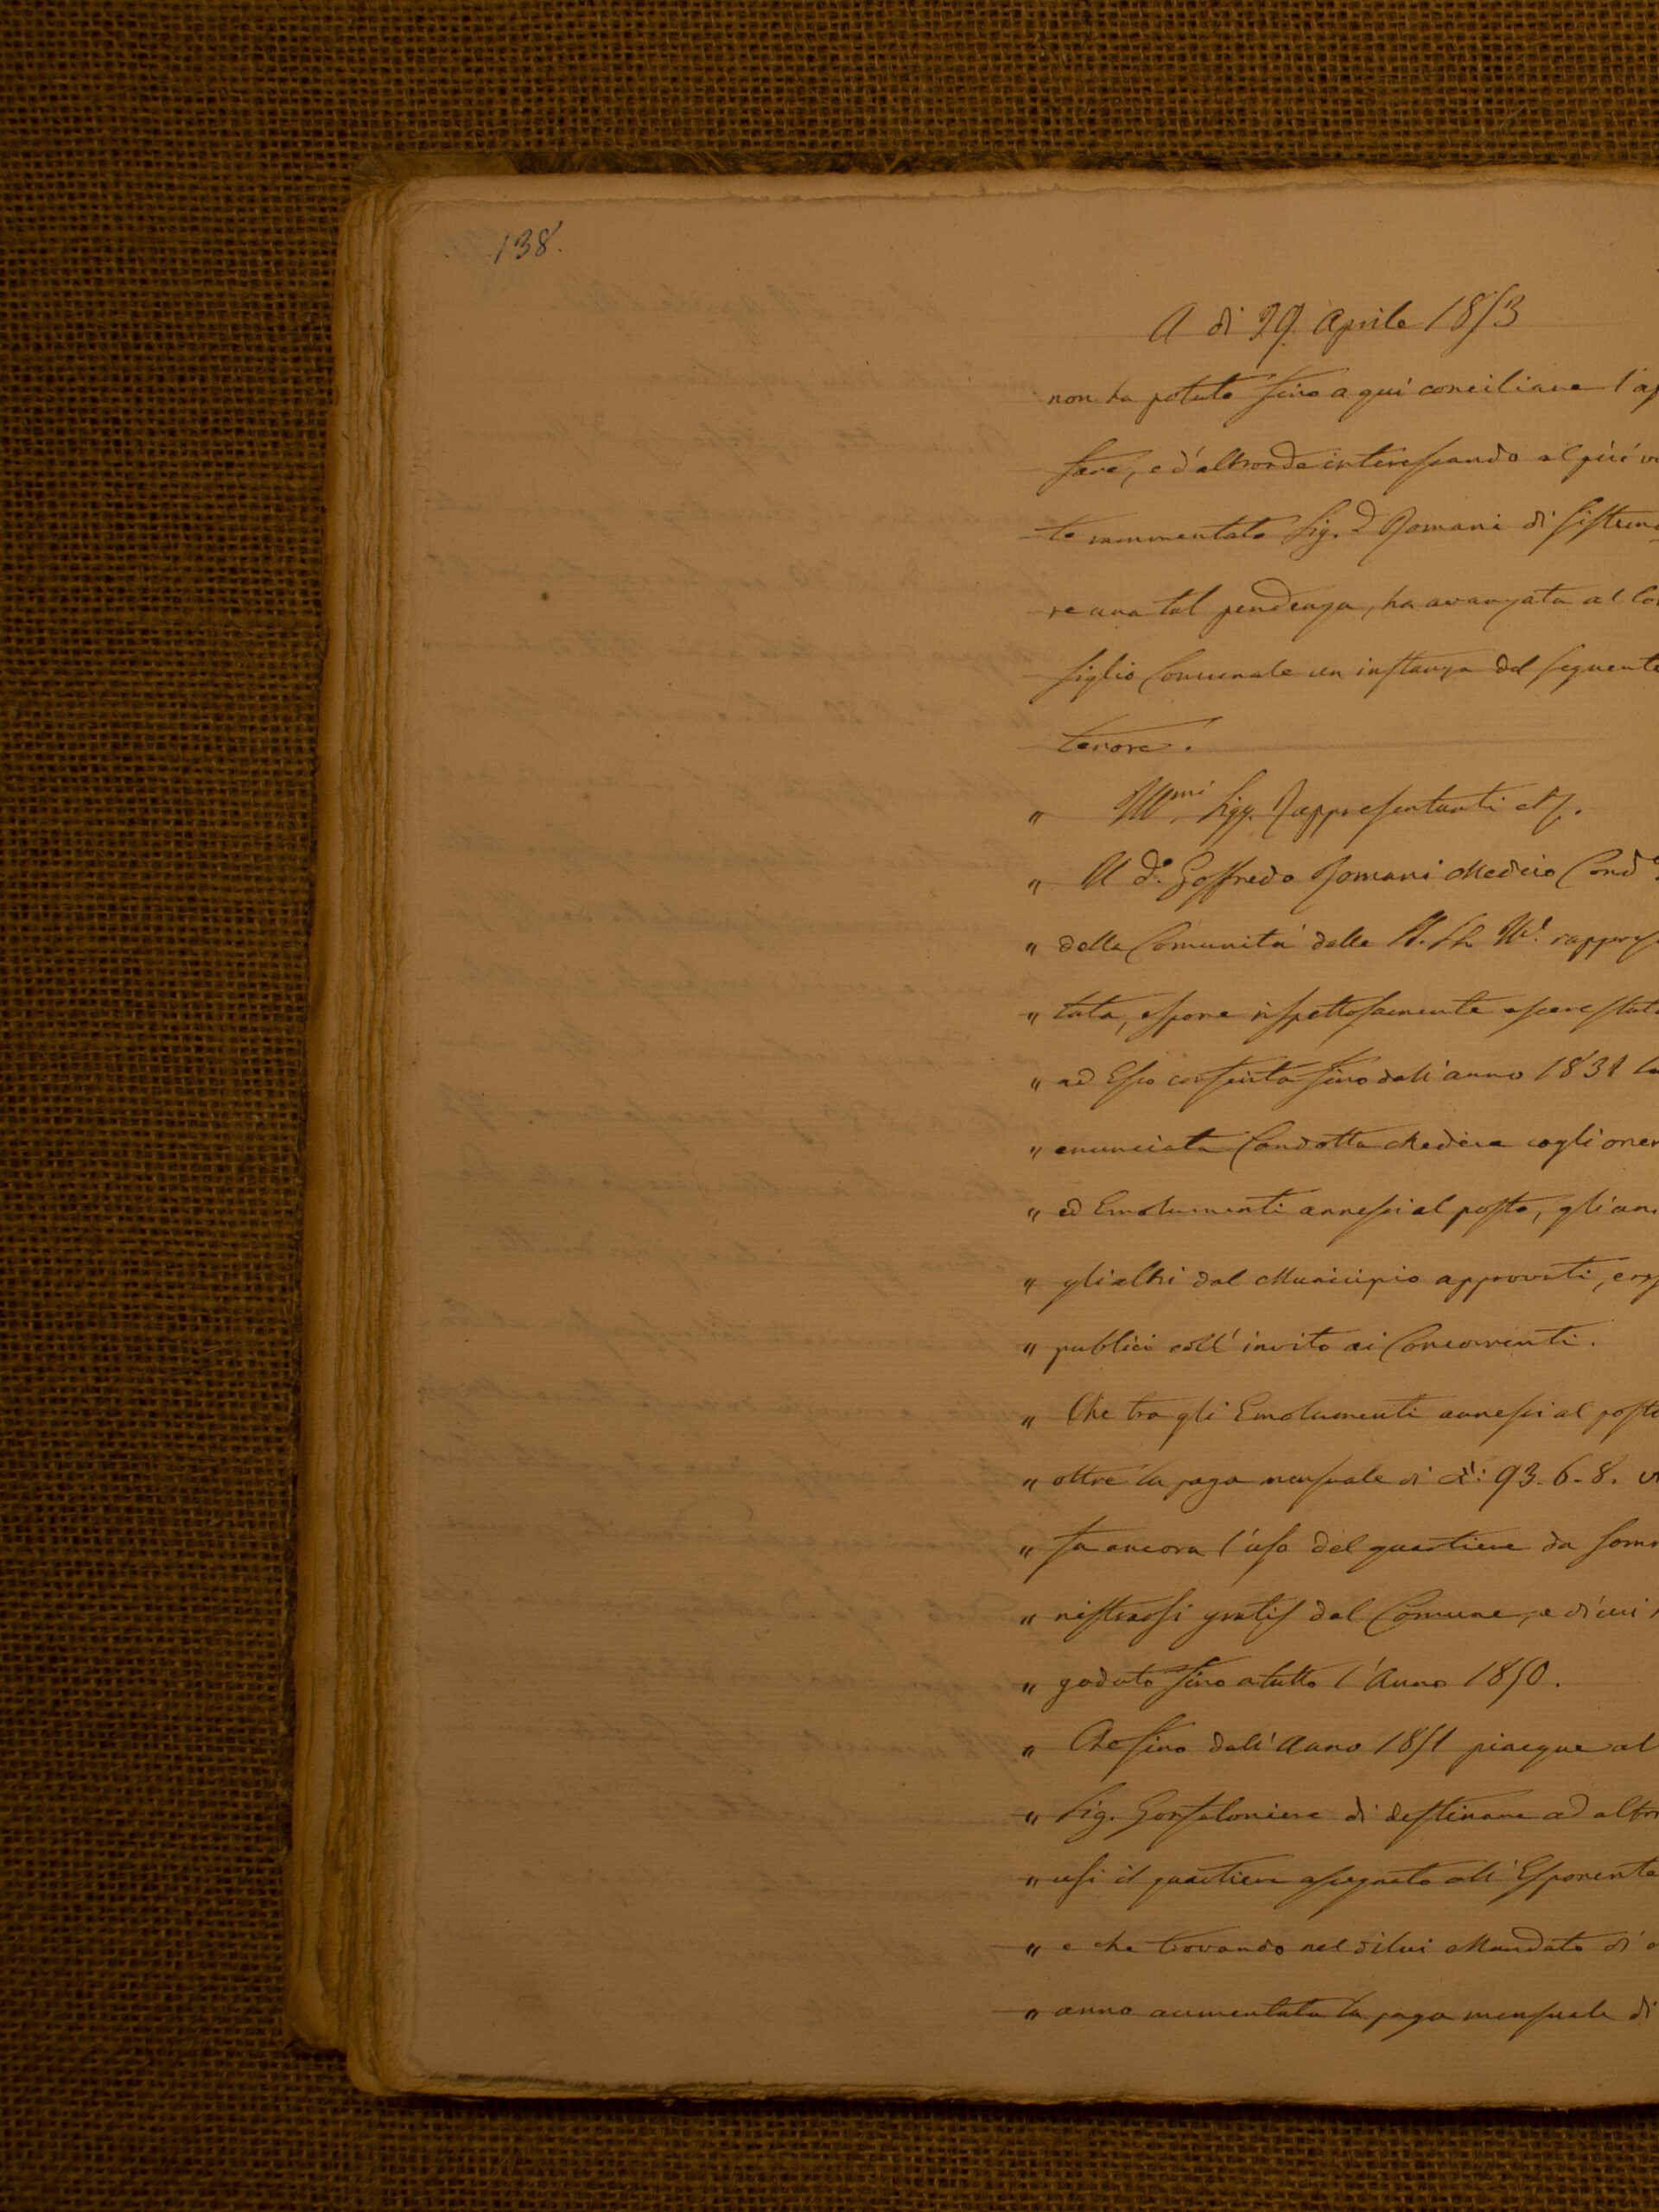 138.
A di 29. Aprile 1853
non ha potuto sino a qui conciliare l'af
fare, e d'altronde interessando al più vol
te rammentato Sig. D. Romani di sistema
re una tal pendenza, ha avanzata al Con
siglio Comunale un instanza del seguente
tenore.
" Ill.mi Sigg. Rappresentanti
" Il D.r Goffredo Romani Medico Cond.o
" della Comunità dalle rappresen
" tata, espone rispettosamente essere stata
" ad Esso conferita sino dall'anno 1831 la
" enunciata Condotta Medica cogli oneri
" ed Emolumenti annessi al posto, gli uni
" gli altri dal Municipio approvati, e resi
" publici coll' invito ai Concorrenti.
" Che tra gli Emolumenti annessi al posto
" oltre la paga mensuale di £: 93.6.8. vi
" fu ancora l'uso del quartiere da sommi
" nistrarsi gratis dal Comune, e di cui
" goduto sino a tutto l'Anno 1850.
" Che sino dall'Anno 1851 piacque al
" Sig. Gonfaloniere di destinare ad altri
" usi il quartiere assegnato all' Esponente
" e che trovando nel di lui Mandato di
" anno aumentata la paga mensuale di